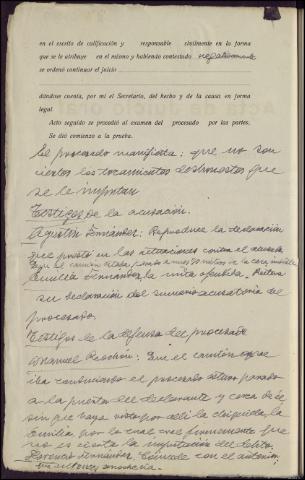 en el escrito de calificación y responsable civilmente en la forma
que se le atribuye en el mismo y habiendo contestado negativamente
se ordenó continuar el juicio
dándose cuenta, por mí el Secretario, del hecho y de la causa en forma
legal.
Acto seguido se procedió al examen del procesado por las partes.
Se dió comienzo a la prueba.
El procesado manifiesta: que no son
ciertos los tocamientos deshonestos que
se le imputan
Testigos de la acusación.
Agustín Fernández: Reproduce la declaración
que prestó en las actuaciones contra el acusado
Que el camión estaba parado a unos metros de la casa
Emilia Fernández la niña ofendida. Reitera
su declaración del sumario acusatoria del
procesado.
Testigos de la defensa del procesado
Manuel Que el camión que
iba conduciendo el procesado estuvo parado
a la puerta del declarante y cerca de él,
sin que haya visto por allí la chiquilla, la
Emilia por lo cual cree firmemente que
no es cierta la imputación del delito.
Fernández Coincide con el anterior,